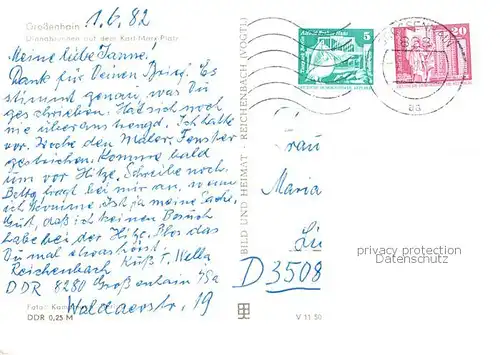 Großenhain
1.6.82
Dianabrunnen auf dem Karl-Marx-Platz
Meine liebe Janne!
Dank für Deinen Brief. Es
stimmt genau, was Du
geschrieben. Hab sich noch
nie überanstrengd. Ich hatte
vor. Woche den Maler. Fenster
gestrichen. Komme bald
um vor Hitze. Schreibe noch.
Betty fragt bei mir an, wann
ich komme. Ist ja meine Sache.
Gut, daß ich keinen Besuch
habe bei der Hitze. Blos das
Du mal etwas hörst.
Reichenbach Küß T. Wella
DDR 8280 Großenhain
Waldaerstr. 19
Foto:
DDR 0,25 M
BILD UND HEIMAT · REICHENBACH (VOGTL)
5
20
GROSSENHAIN
Frau
Maria
D3508
privacy protection
Datenschutz
V 11 50